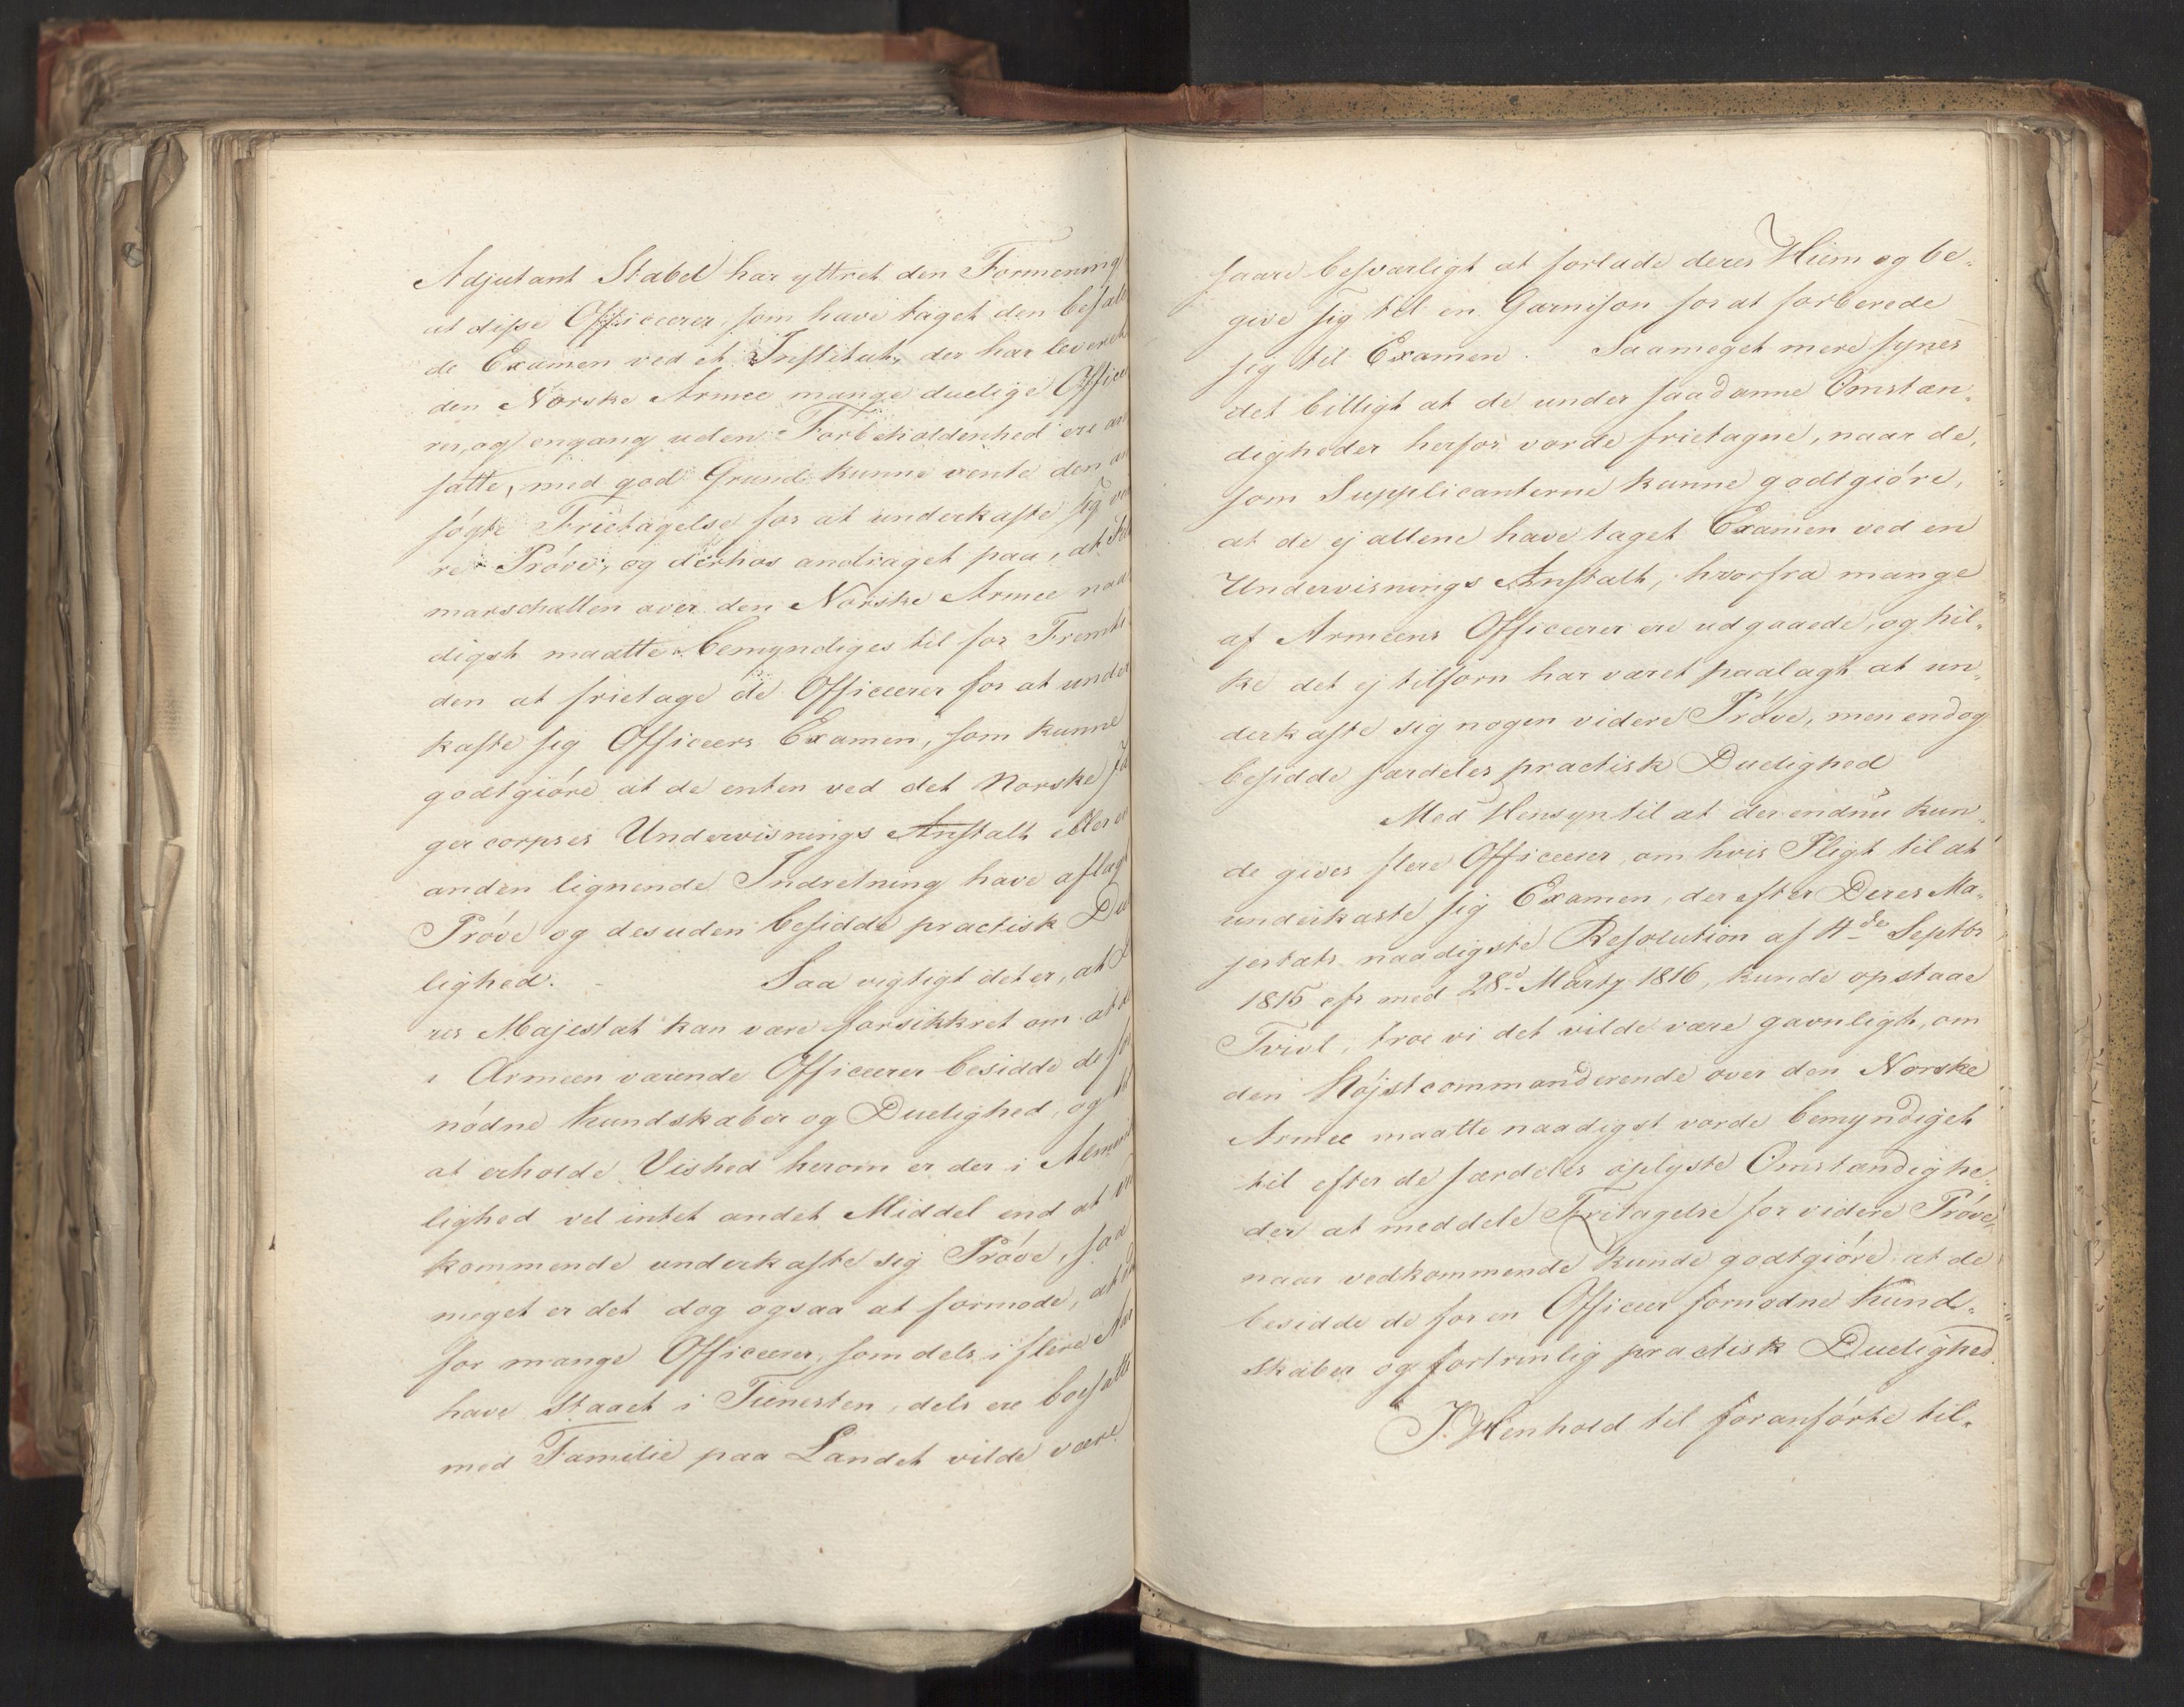 Adjutant Stabel har yttret den Formening
at disse Officeerer, som have taget den befal
de Examen ved et Institut, der har leveret
den Norske Armee mange duelige Offic
rer, og engang uden Forbeholdenhed ere an
satte, med god Grund kunne vente den an
søgte Frietagelse for at underkaste sig vi
re Prøve, og derhos andraget paa, at Fel
marschallen over den Norske Armee naa
digst maatte bemyndiges til for Fremti
den at frietage de Officeerer for at under
kaste sig Officeers Examen, som kunne
godtgiøre at de enten ved det Norske Jæ
gercorpses Undervisnings Anstalt eller en
anden lignende Indretning have aflagt
Prøve og desuden besidde practisk Du
lighed. Saa vigtigt det er, at De
res Majestæt kan være forsikkret om at de
i Armeen værende Officeerer besidde de for
nødne Kundskaber og Duelighed, og til
at erholde Vished herom er der i Almind
lighed vel intet andet Middel end at ved
kommende underkaste sig Prøve, saa
meget er det dog ogsaa at formode, at det
for mange Officeerer, som dels i flere Aar
have staaet i Tienesten, dels ere bosatte
med Familie paa Landet vilde være
saare besværligt at forlade deres Hiem og be-
give sig til en Garnison for at forberede
sig til Examen. Saameget mere synes
det billigt at de under saadanne Omstæn-
digheder herfor vorde frietagne, naar de,
som Supplicanterne kunne godtgiøre,
at de ej allene have taget Examen ved en
Undervisnings Anstalt, hvorfra mange
af Armeens Officeerer ere udgaaede, og hil-
ke det ej tilforn har været paalagt at un-
derkaste sig nogen videre Prøve, men endog
besidde særdeles practisk Duelighed
Med Hensyn til at der endnu kun-
de gives flere Officeerer, om hvis Pligt til at
underkaste sig Examen, der efter Deres Ma-
jestæts naadigste Resolution af 4de Septbr
1815 cfr med 28d Marty 1816, kunde opstaae
Tvivl, troe vi det vilde være gavnligt, om
den Højstcommanderende over den Norske
Armee maatte naadigst vorde bemyndiget
til efter de særdeles oplyste Omstændighe-
der at meddele Fritagelse for videre Prøve,
naar vedkommende kunde godtgiøre at de
besidde de for en Officeer fornødne Kund-
skaber og fortrinlig practisk Duelighed.
I Henhold til foranførte til-